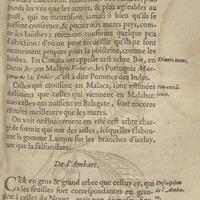 grands les vns que les autres, & plus agreable au
goust, qui ne neurtrissent jamais si bien qu'ils se
puissent conserver, & porter aux autres pays, com-
me les Iuiubes; retenans tousiours quelque peu
d'astriction d'ou l'on peut recueillir qu'ils ne sont
nullement propres pour la poictrine, comme les
Iuiubes. En Canara on appelle cest arbre Bor, en
Decan Ber, en Malayo les Portugois Man-
çanas de las Indias, c'est à dire Pommes des Indes.
Celles qui croissent en Malaca, sont estimées
meilleures que celles qui viennent en Malabar:
mais celles qui naissent en Balagate, sont encores
meilleures que les autres.
On voit ordinairement en esté cest arbre char-
gé de formis qui ont des aisles, lesquelles elabou-
rent la gomme Lacque sur les branches d'iceluy,
que la saison dure.
Divers noms.
De l'Ambare.
C'Est vn gros & grand arbre que cestuy cy, qui
a les feuilles fort correspondantes en gran-
deur à celles du Noyer, mais non de mesme
Description
de l'Amba-